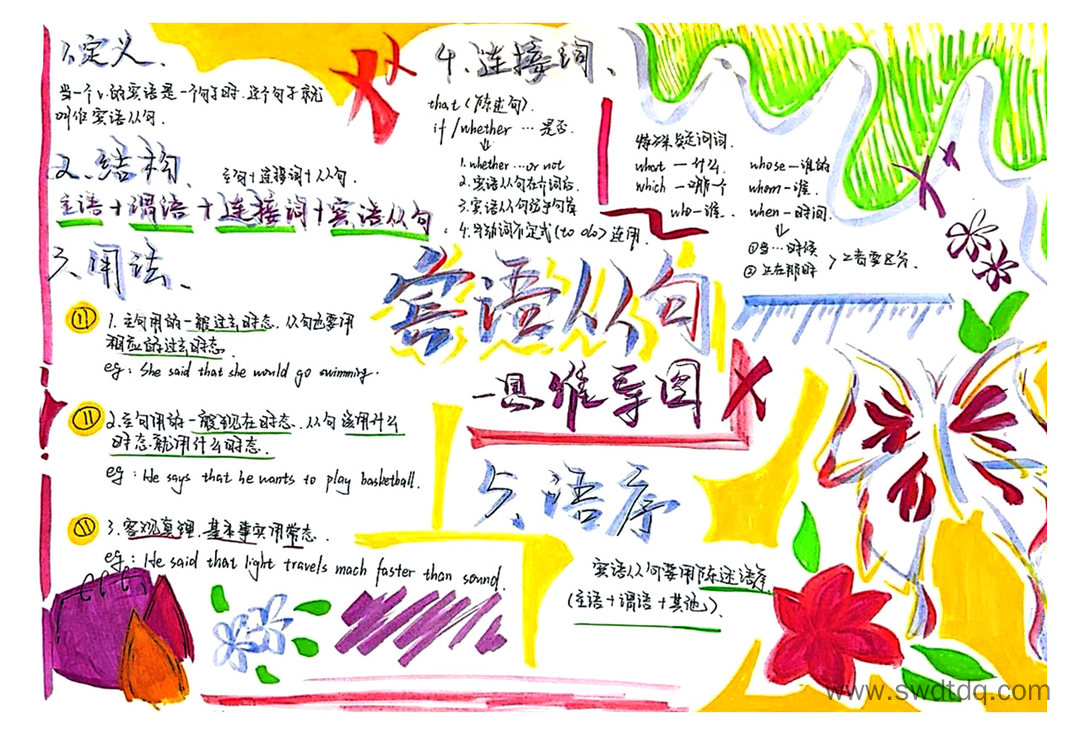 1、定义、
当一个v.的宾语是一个句子时,这个句子就
叫作宾语从句.
2、结构、 主句+连接词+从句.
主语+谓语+连接词+宾语从句
3、用法、
1. 主句用的一般过去时态. 从句也要用
相应的过去时态.
eg: She said that she would go swimming.
2. 主句用的一般现在时态. 从句该用什么
时态就用什么时态.
eg: He says that he wants to play basketball.
3. 客观真理、基本事实用常态.
eg: He said that light travels mach faster than sound.
4、连接词、
that (陈述句).
if/whether … 是否.
1. whether …or not
2. 宾语从句在介词后.
3. 宾语从句放于句首
4. 与动词不定式(to do)连用.
特殊疑问词.
what — 什么.
which — 哪一个
who — 谁.
whose — 谁的
whom — 谁.
when — 时间.
①当…时候
②正在那时
> 二者要区分.
宾语从句
—思维导图
5、语序
宾语从句要用陈述语序
(主语+谓语+其他).
www.swdtdq.com